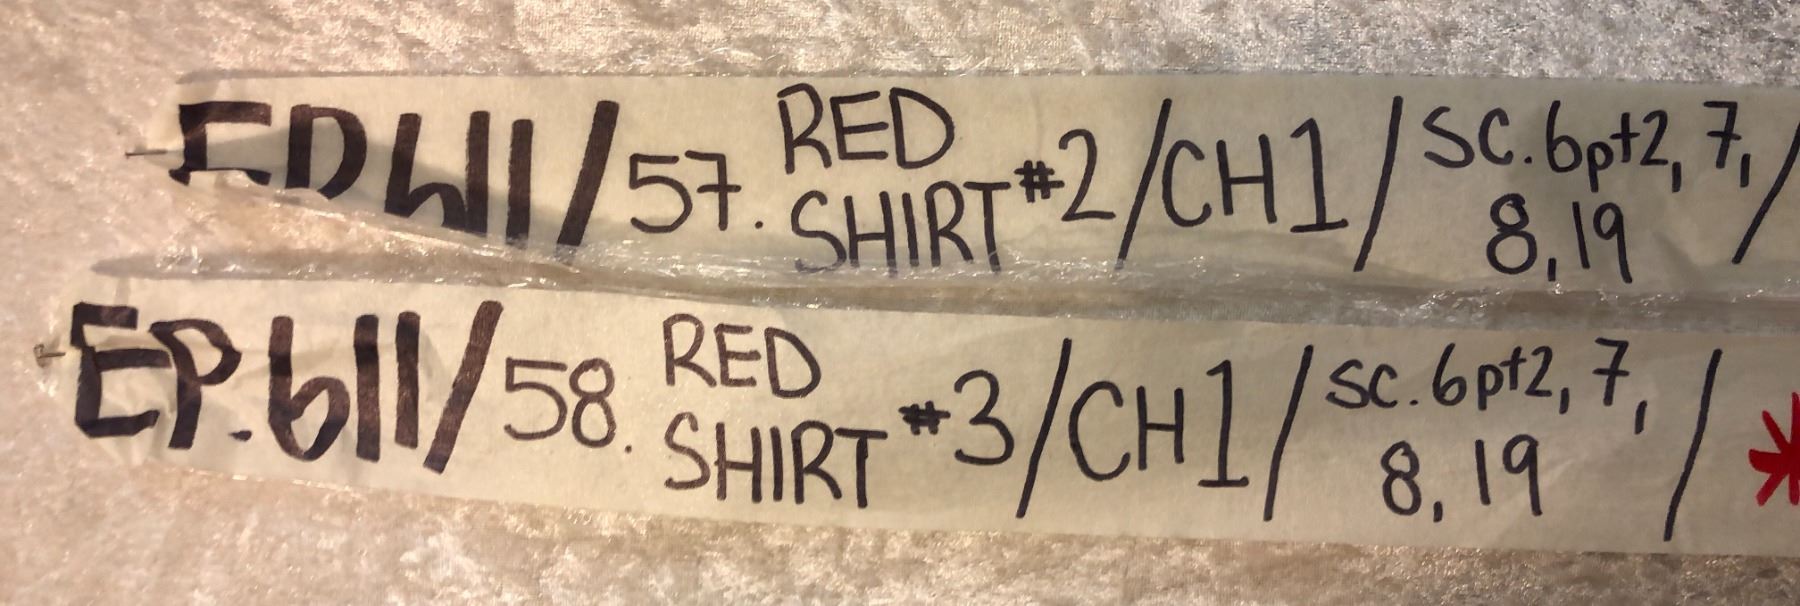 EP 611/57. RED SHIRT #2/CH1/SC. 6pt2, 7, 8, 19/
EP. 611/58. RED SHIRT #3/CH1/SC. 6pt2, 7, 8, 19/*